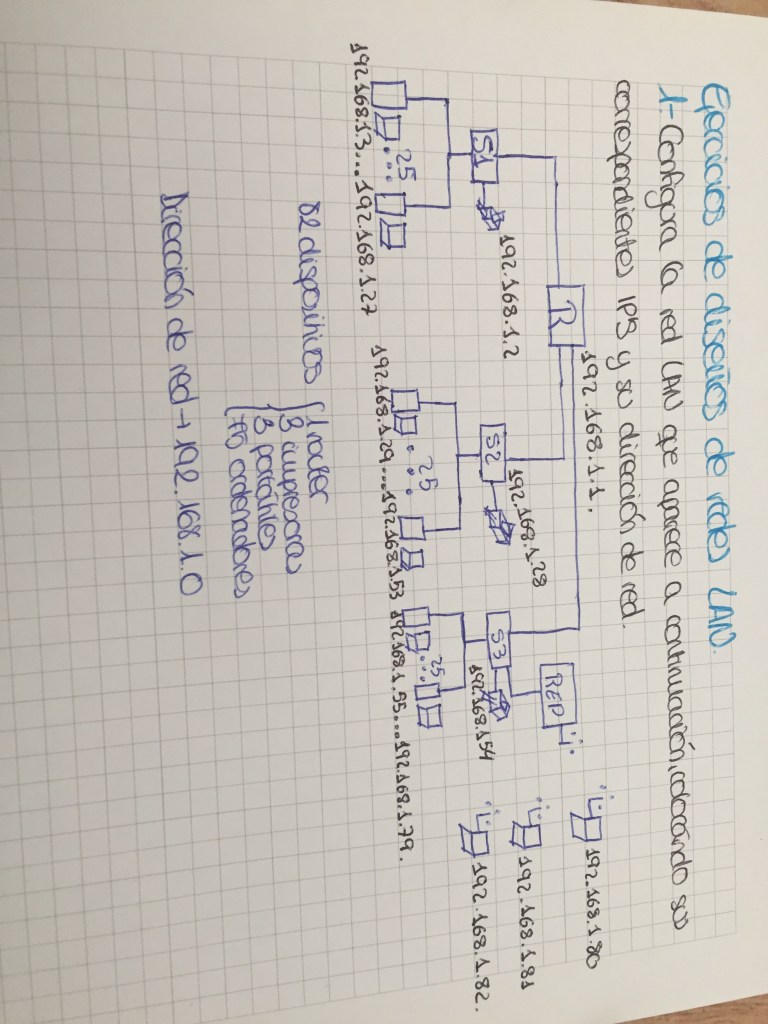 Ejercicios de diseños de redes LAN.
1.- Configura la red LAN que aparece a continuación, colocando sus
correspondientes IPS y su dirección de red.
R
192.168.1.1.
S1
192.168.1.2
S2
192.168.1.28
S3
192.168.1.54
REP
192.168.1.80
192.168.1.81
192.168.1.82.
25
192.168.1.3...192.168.1.27
25
192.168.1.29...192.168.1.53
25
192.168.1.55...192.168.1.79.
82 dispositivos
1 router
3 impresoras
3 portátiles
75 ordenadores
Dirección de red → 192.168.1.0